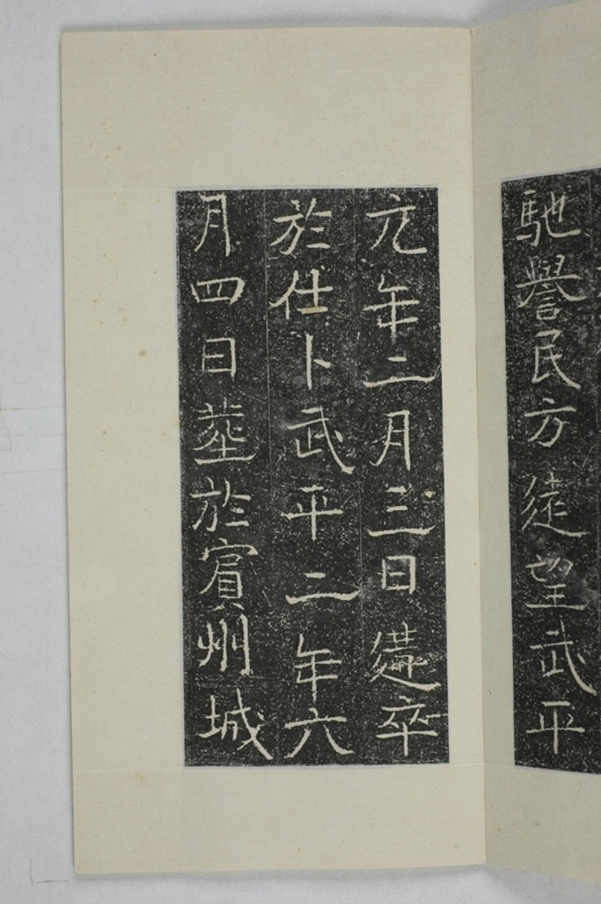 馳譽民方望武平
元年二月三日卒
於仕卜武平二年六
月四日塟於賓州城